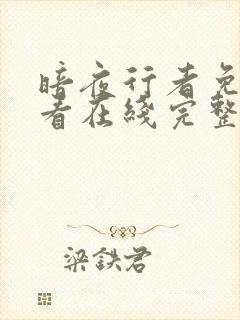 暗夜行者免
看在线完整
梁鉄君